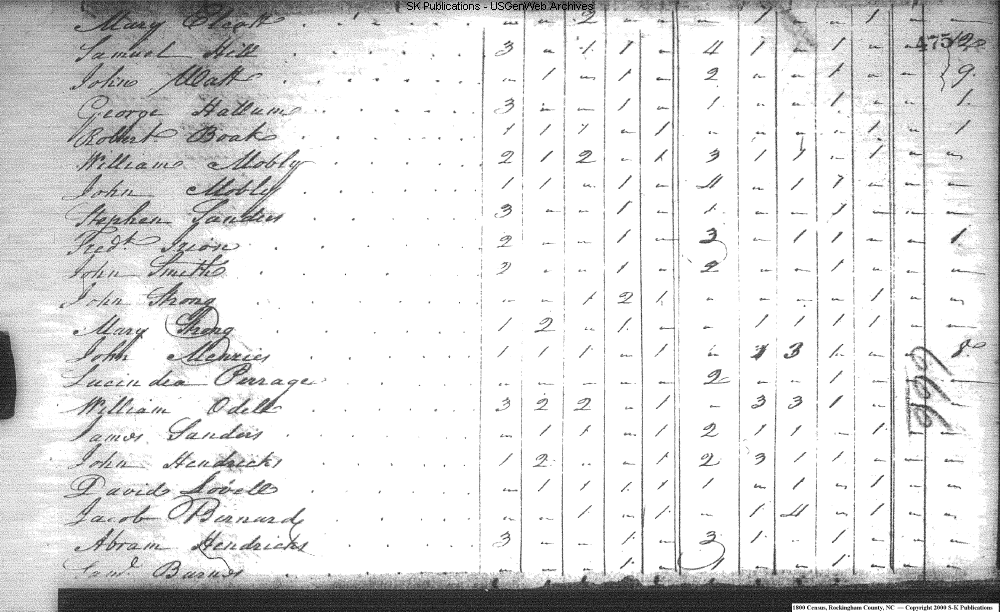 SK Publications - USGenWeb Archives
Mary — — 2 — — — 1 — — 1 — —
Samuel Hill 3 — 1 1 — 4 1 — 1 — — 12
John — 1 — 1 — 2 — — 1 — — 9
George Hallums 3 — — 1 — 1 — — 1 — — 1
Robert Boak 1 1 1 — 1 — — — — 1 — 1
William Mobly 2 1 2 — 1 3 1 1 — 1 — —
John Mobly 1 1 — 1 — 4 — 1 1 — — —
Stephen Sanders 3 — — 1 — 1 — — 1 — — —
Fredk Irion 2 — — 1 — 3 — 1 1 — — 1
John Smith 2 — — 1 — 2 — — 1 — — —
John Strong — — 1 2 1 — — — — 1 — —
Mary Strong 1 2 — 1 — — 1 1 1 1 — —
John Menzies 1 1 1 — 1 — 3 1 — — 8
Lucindea Perrage — — — — — 2 — — 1 — — —
William Odell 3 2 2 — 1 — 3 3 1 — — —
James Sanders — 1 1 — 1 2 1 1 — 1 — —
John Hendricks 1 2 — — 1 2 3 1 1 — — —
David Lovell — 1 1 1 1 1 — 1 — 1 — —
Jacob Bernard — — 1 — 1 — 1 4 — 1 — —
Abram Hendricks 3 — — 1 — 3 1 — 1 — — —
Saml Barnes — — — 1 — — — 1 — — —
666
1800 Census, Rockingham County, NC — Copyright 2000 S-K Publications